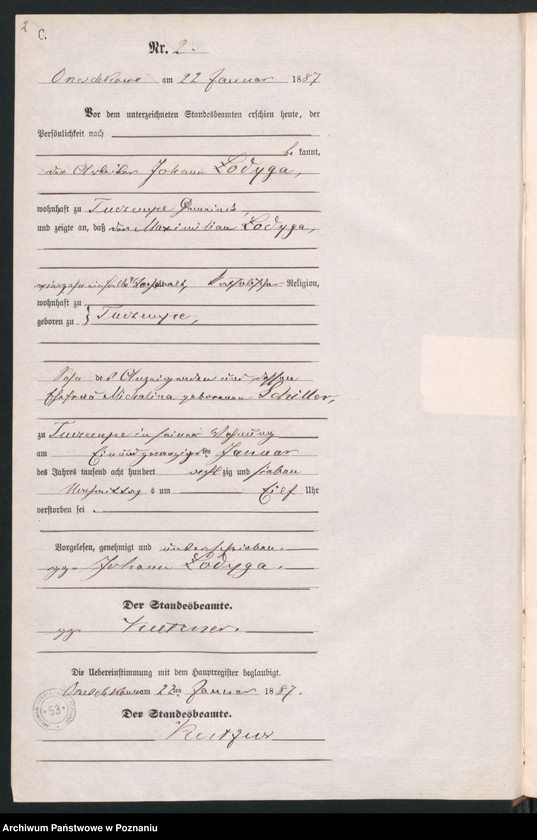 2
C.
Nr. 2.
am 22 Januar 1887
Vor dem unterzeichneten Standesbeamten erschien heute, der
Persönlichkeit nach
be kannt,
der Arbeiter Johann Lodyga,
wohnhaft zu
und zeigte an, daß der Maximilian Lodyga,
Religion,
wohnhaft zu
geboren zu
Sohn des Anzeigenden und dessen
Ehefrau Michalina geborenen Schiller,
zu in seiner Wohnung
am Ein und zwanzigsten Januar
des Jahres tausend acht hundert acht zig und sieben
Nachmittags um Eilf Uhr
verstorben sei.
Vorgelesen, genehmigt und unterschrieben.
gez. Johann Lodyga.
Der Standesbeamte.
gez.
Die Uebereinstimmung mit dem Hauptregister beglaubigt.
am 22ten Januar 1887.
Der Standesbeamte.
53
Archiwum Państwowe w Poznaniu